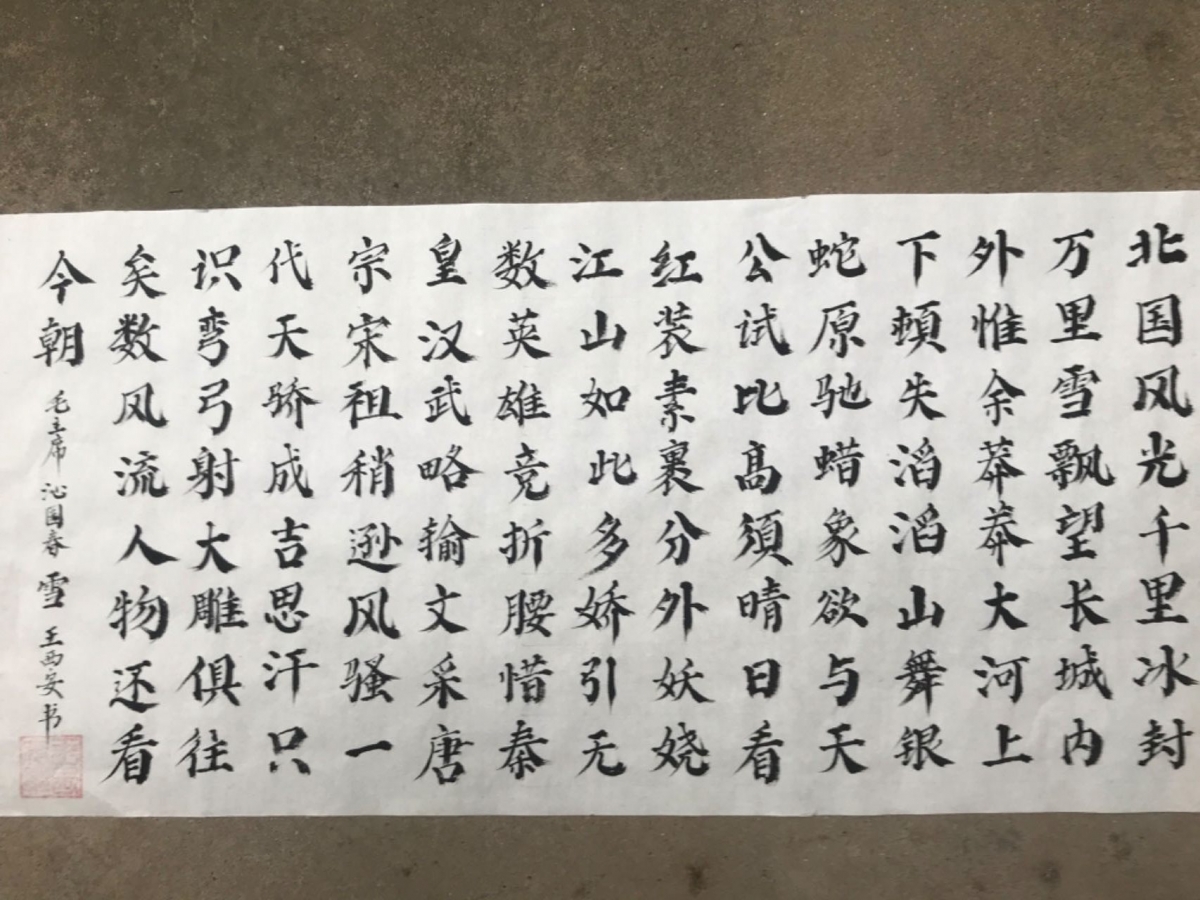 北国风光千里冰封
万里雪飘望长城内
外惟余莽莽大河上
下頓失滔滔山舞银
蛇原驰蜡象欲与天
公试比高須晴日看
红装素裹分外妖娆
江山如此多娇引无
数英雄竞折腰惜秦
皇汉武略输文采唐
宗宋祖稍逊风骚一
代天骄成吉思汗只
识弯弓射大雕俱往
矣数风流人物还看
今朝 毛主席 沁园春 雪 王西安书